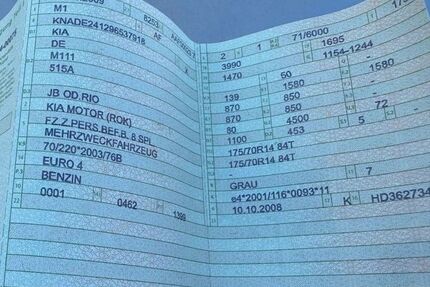 M1
8253
AF
KNADE241296537918
KIA
DE
M111
515A
JB OD.RIO
KIA MOTOR (ROK)
FZ.Z.PERS.BEF.B. 8 SPL.
MEHRZWECKFAHRZEUG
70/220*2003/76B
EURO 4
BENZIN
0001 0462 1399
2 1 71/6000
3990 1695
1470 1154-1244
50
139 1580 1580
870 850 -
870 850 -
80 4500 72 -
1100 453 5
175/70R14 84T
175/70R14 84T
GRAU 7
e4*2001/116*0093*11
10.10.2008 K HD362734